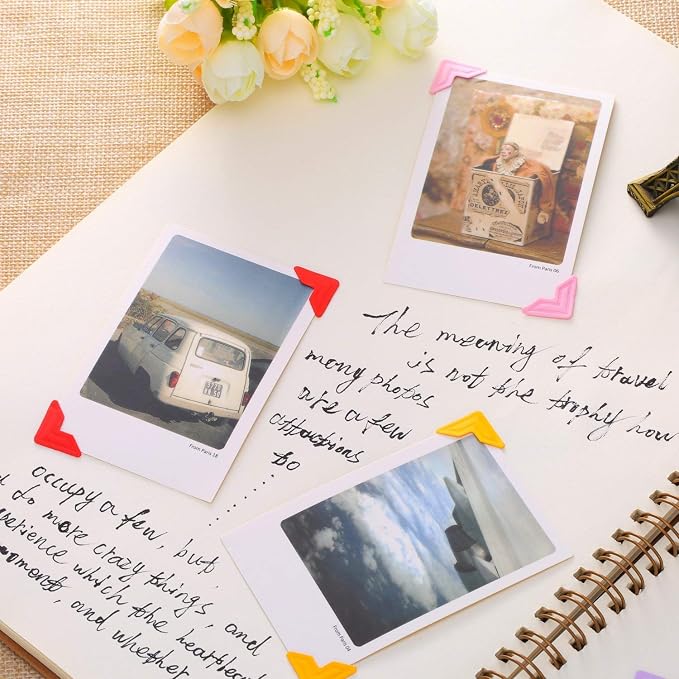 DELETTREZ
From Paris 06
The meaning of travel
is not the trophy how
many photos
are a few
attractions
to
From Paris 18
occupy a few, but
do more crazy things, and
experience which the heartbeat
moments, and whether
From Paris 04